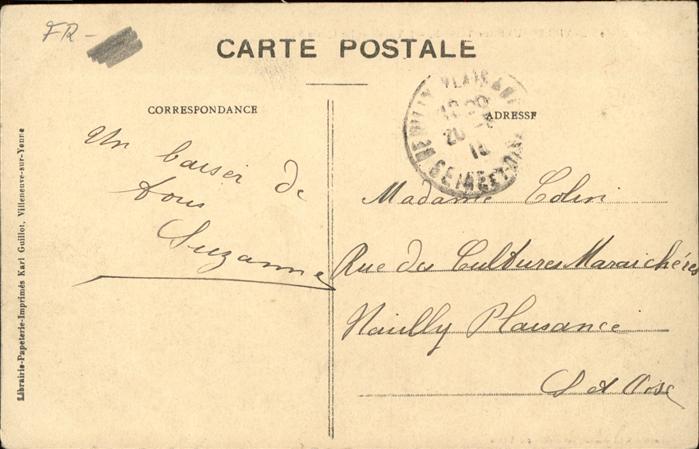 FR-
CARTE POSTALE
CORRESPONDANCE
ADRESSE
Un baiser de
tous
Suzanne
Madame Colin
Rue des Cultures Maraichéres
Neuilly Plaisance
S et Oise
SEINE ET OISE
Librairie-Papeterie-Imprimés Karl Guillot, Villeneuve-sur-Yonne